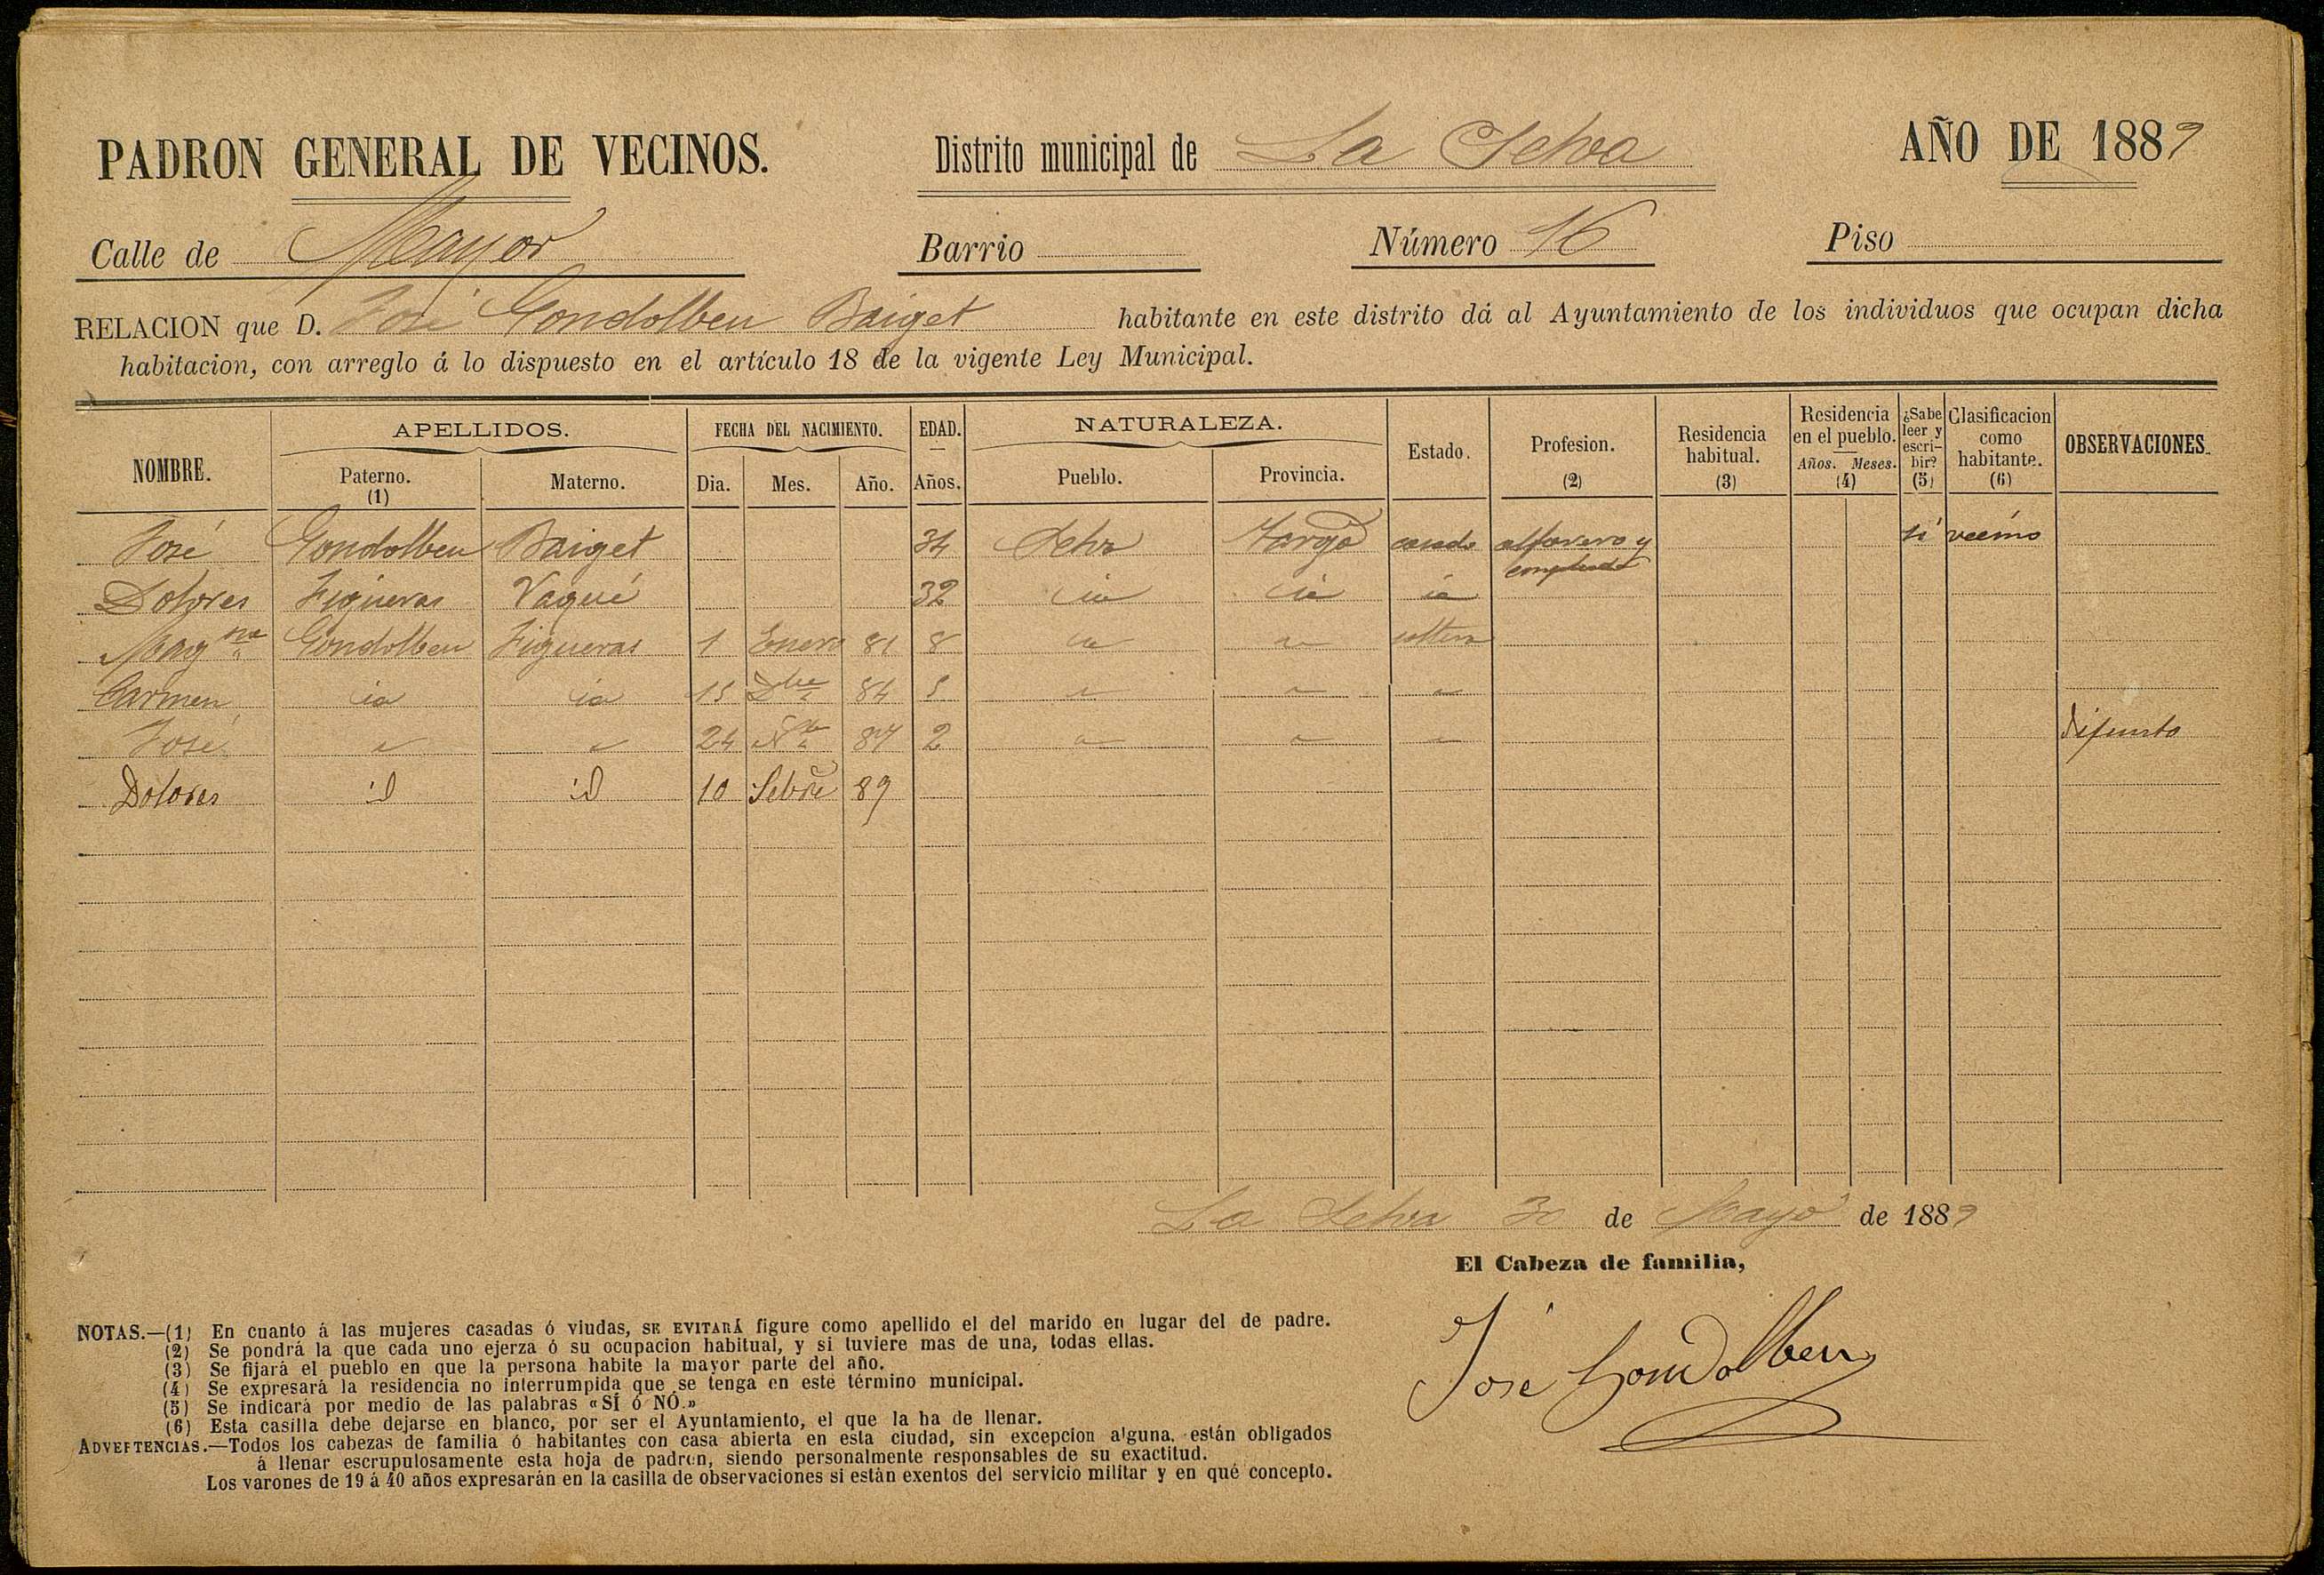 PADRON GENERAL DE VECINOS. Distrito municipal de La Selva AÑO DE 1889
Calle de Mayor Barrio Número 16 Piso
RELACION que D. José Gondolbeu Baiget habitante en este distrito dá al Ayuntamiento de los individuos que ocupan dicha
habitacion, con arreglo á lo dispuesto en el artículo 18 de la vigente Ley Municipal.
NOMBRE. APELLIDOS. FECHA DEL NACIMIENTO. EDAD. NATURALEZA. Estado. Profesion. (2) Residencia habitual. (3) Residencia en el pueblo. ¿Sabe leer y escribir? (5) Clasificacion como habitante. (6) OBSERVACIONES.
Paterno. (1) Materno. Dia. Mes. Año. Años. Pueblo. Provincia. Años. Meses. (4)
José Gondolbeu Baiget 34 Selva casado alfarero y si vecino
empleado
Dolores Figueras Vaqué 32 id id id
Gondolbeu Figueras 1 Enero 81 8 soltera
Carmen id id 15 Dbre 84 5
José 24 87 2 difunto
Dolores id id 10 Sebre 89
La Selva 30 de Mayo de 1889
El Cabeza de familia,
José Gondolbeu
NOTAS.—(1) En cuanto á las mujeres casadas ó viudas, SE EVITARÁ figure como apellido el del marido en lugar del de padre.
(2) Se pondrá la que cada uno ejerza ó su ocupacion habitual, y si tuviere mas de una, todas ellas.
(3) Se fijará el pueblo en que la persona habite la mayor parte del año.
(4) Se expresará la residencia no interrumpida que se tenga en este término municipal.
(5) Se indicará por medio de las palabras «SÍ ó NÓ.»
(6) Esta casilla debe dejarse en blanco, por ser el Ayuntamiento, el que la ha de llenar.
ADVERTENCIAS.—Todos los cabezas de familia ó habitantes con casa abierta en esta ciudad, sin excepcion alguna, están obligados
á llenar escrupulosamente esta hoja de padron, siendo personalmente responsables de su exactitud.
Los varones de 19 á 40 años expresarán en la casilla de observaciones si están exentos del servicio militar y en qué concepto.